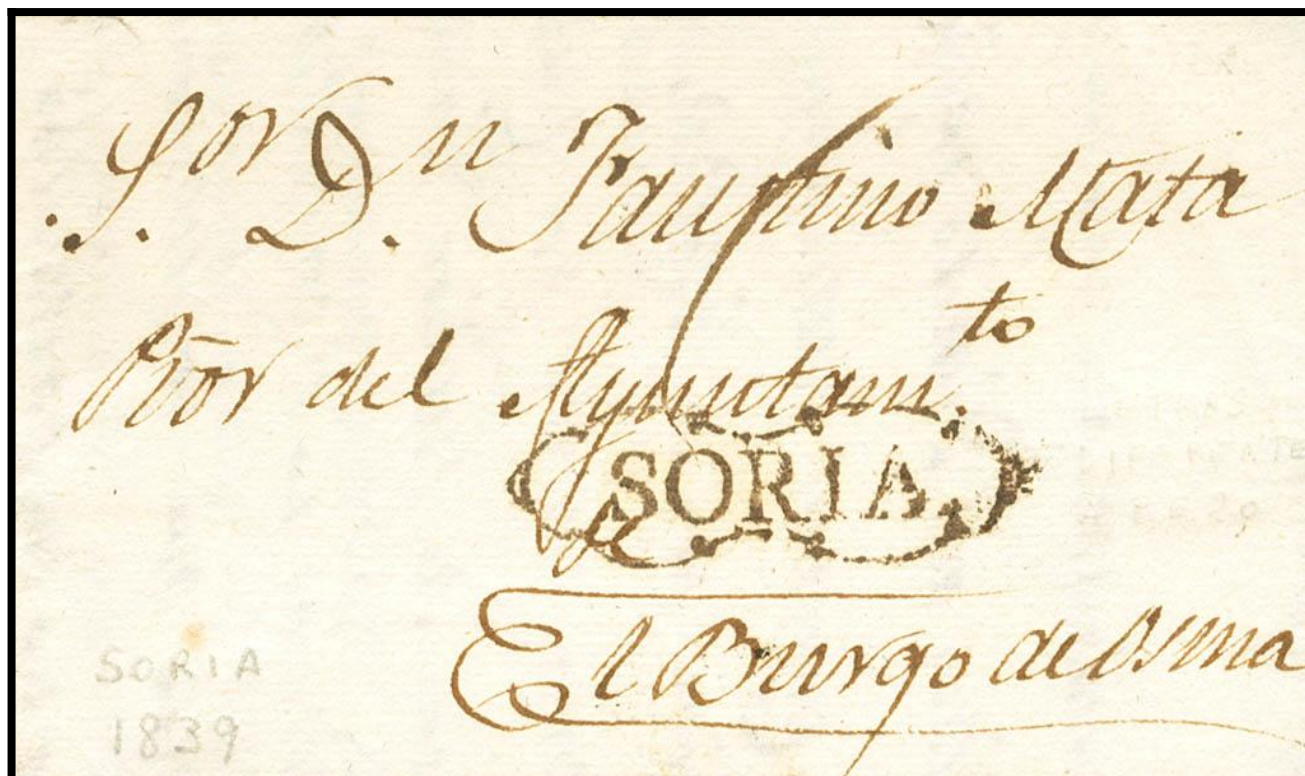 S.or D.n Faustino Mata
Prõr del Ayuntam.to
SORIA
de
El Burgo de Osma
SORIA
1839